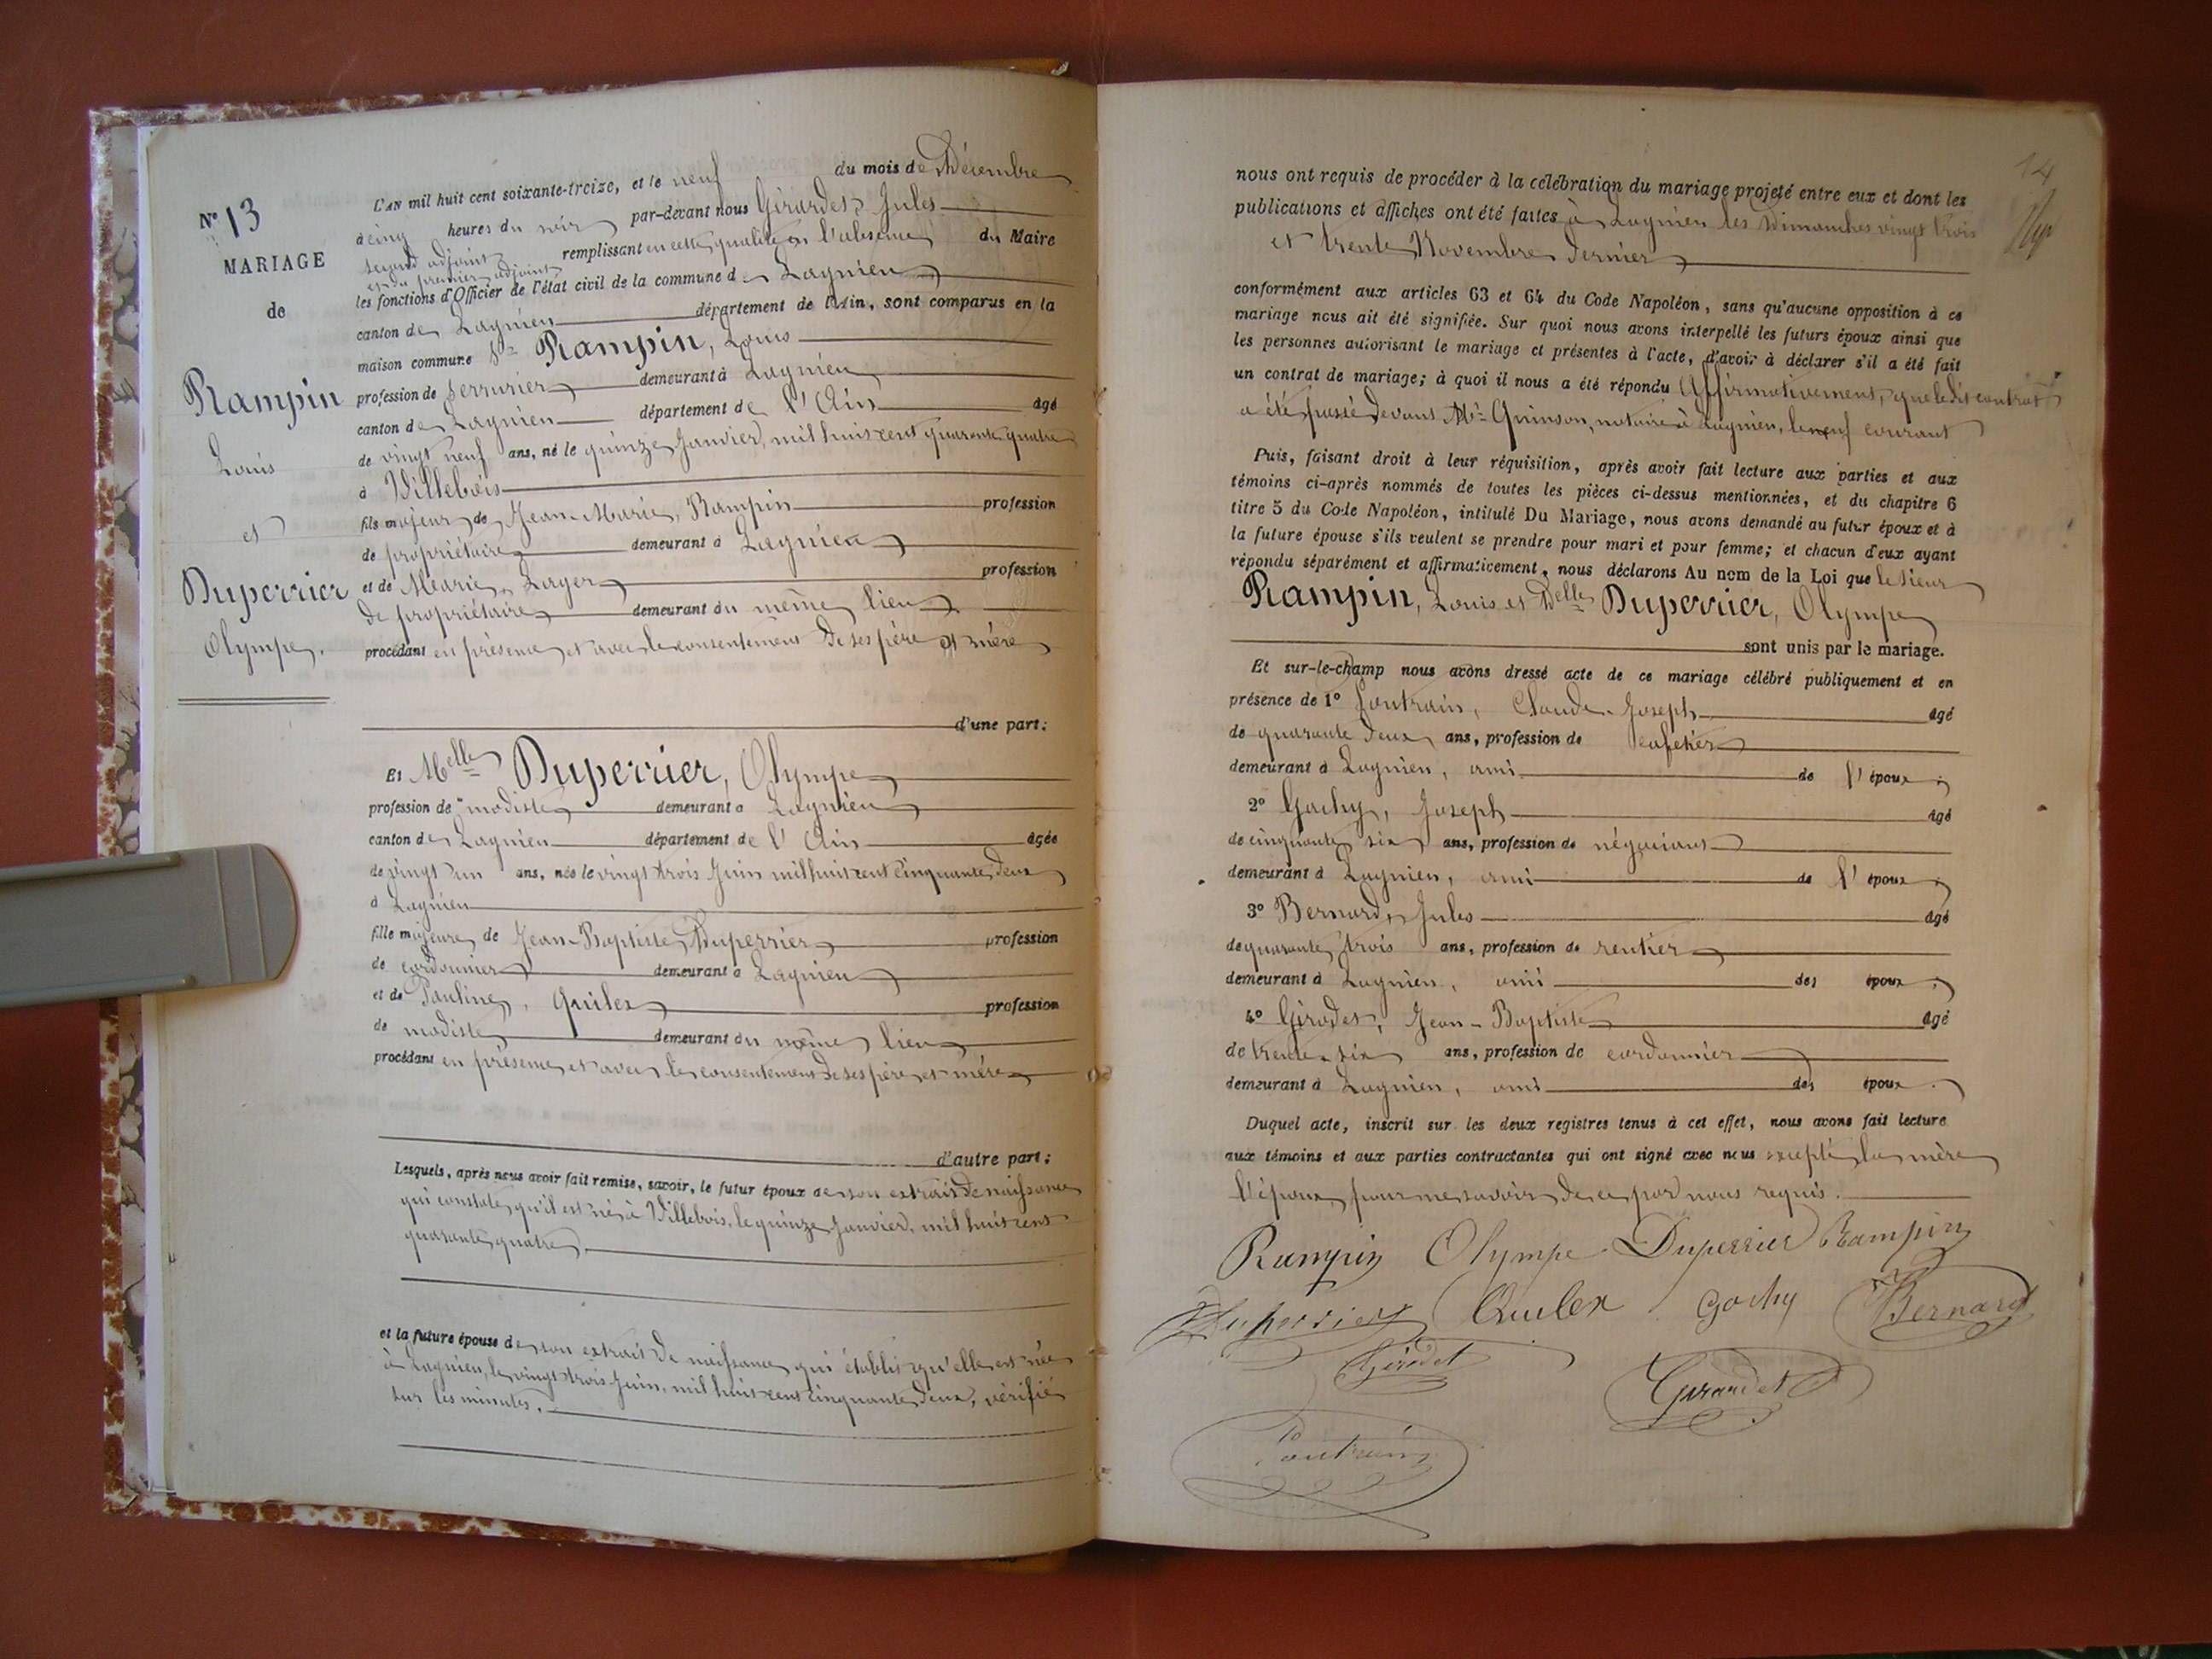 N° 13
MARIAGE
de
Rampin
Louis
et
Duperrier
Olympe.
L'AN mil huit cent soixante-treize, et le neuf du mois de Décembre
à cinq heures du soir par-devant nous Girardet, Jules
second adjoint remplissant en cette qualité en l'absence du Maire
et du premier adjoint
les fonctions d'Officier de l'état civil de la commune de Lagnieu
canton de Lagnieu département de l'Ain, sont comparus en la
maison commune Sr Rampin, Louis
profession de serrurier demeurant à Lagnieu
canton de Lagnieu département de l'Ain âgé
de vingt neuf ans, né le quinze Janvier, mil huit cent quarante quatre
à Villebois
fils majeur de Jean-Marie, Rampin profession
de propriétaire demeurant à Lagnieu
et de Marie, Layer profession
de propriétaire demeurant du même lieu
procédant en présence et avec le consentement de ses père et mère
d'une part;
Et Melle Duperrier, Olympe
profession de modiste demeurant à Lagnieu
canton de Lagnieu département de l'Ain âgée
de vingt un ans, née le vingt trois Juin mil huit cent cinquante deux
à Lagnieu
fille majeure de Jean-Baptiste, Duperrier profession
de cordonnier demeurant à Lagnieu
et de Pauline, Quilex profession
de modiste demeurant du même lieu
procédant en présence et avec le consentement de ses père et mère
d'autre part;
Lesquels, après nous avoir fait remise, savoir, le futur époux de son extrait de naissance
qui constate qu'il est né à Villebois, le quinze Janvier, mil huit cent
quarante quatre.
et la future épouse de son extrait de naissance qui établit qu'elle est née
à Lagnieu, le vingt trois Juin, mil huit cent cinquante deux, vérifié
sur les minutes.
14
nous ont requis de procéder à la célébration du mariage projeté entre eux et dont les
publications et affiches ont été faites à Lagnieu les Dimanches vingt trois
et trente Novembre dernier
conformément aux articles 63 et 64 du Code Napoléon, sans qu'aucune opposition à ce
mariage nous ait été signifiée. Sur quoi nous avons interpellé les futurs époux ainsi que
les personnes autorisant le mariage et présentes à l'acte, d'avoir à déclarer s'il a été fait
un contrat de mariage; à quoi il nous a été répondu Affirmativement, que le dit contrat
a été passé devant Me Quinson, notaire à Lagnieu, le neuf courant
Puis, faisant droit à leur réquisition, après avoir fait lecture aux parties et aux
témoins ci-après nommés de toutes les pièces ci-dessus mentionnées, et du chapitre 6
titre 5 du Code Napoléon, intitulé Du Mariage, nous avons demandé au futur époux et à
la future épouse s'ils veulent se prendre pour mari et pour femme; et chacun d'eux ayant
répondu séparément et affirmativement, nous déclarons Au nom de la Loi que le sieur
Rampin, Louis et Delle Duperrier, Olympe
sont unis par le mariage.
Et sur-le-champ nous avons dressé acte de ce mariage célébré publiquement et en
présence de 1° Joutrain, Claude-Joseph âgé
de quarante deux ans, profession de cafetier
demeurant à Lagnieu, ami de l'époux;
2° Gachy, Joseph âgé
de cinquante six ans, profession de négociant
demeurant à Lagnieu, ami de l'époux;
3° Bernard, Jules âgé
de quarante trois ans, profession de rentier
demeurant à Lagnieu, ami des époux;
4° Girodet, Jean-Baptiste âgé
de trente-six ans, profession de cordonnier
demeurant à Lagnieu, ami des époux.
Duquel acte, inscrit sur les deux registres tenus à cet effet, nous avons fait lecture
aux témoins et aux parties contractantes qui ont signé avec nous excepté la mère
l'époux pour ne savoir de ce par nous requis.
Rampin Olympe Duperrier Rampin
Duperrier Quilex Gachy Bernard
Girodet Girardet